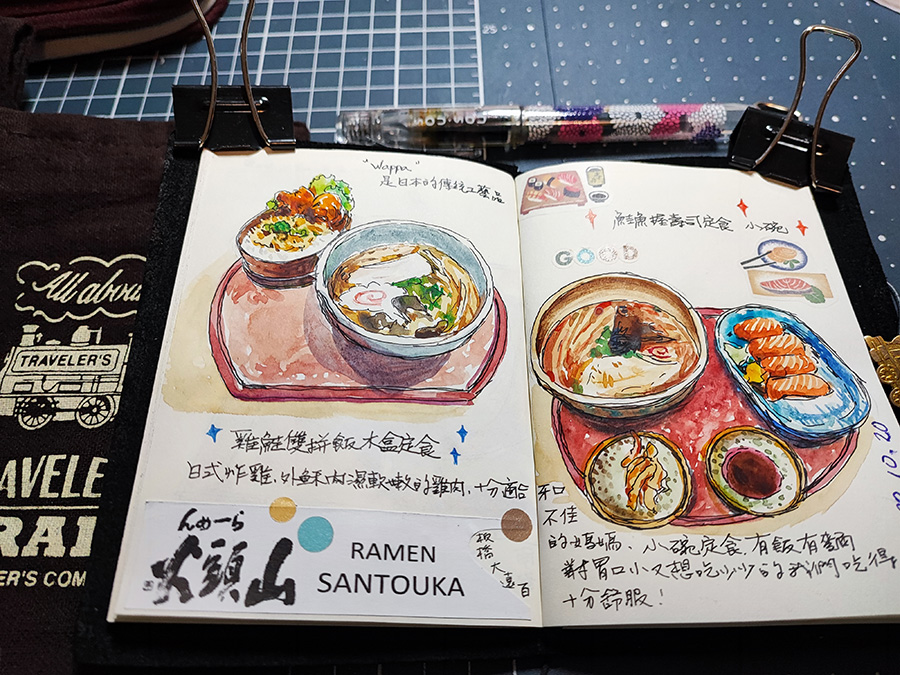 All abou
TRAVELER'S
AVELE
RAI
ER'S COM
"Wappa"
是日本的傳統工藝品
雞鮭雙拼飯木盒定食
日式炸雞,外酥內濕軟嫩的雞肉,十分適合
らーめん
火頭山
RAMEN
SANTOUKA
板橋大遠百
鮭魚握壽司定食 小碗
GOOD
10.20
和
不佳
的媽媽、小碗定食有飯有麵
對胃口小又想吃少少的我們吃得
十分舒服!
25